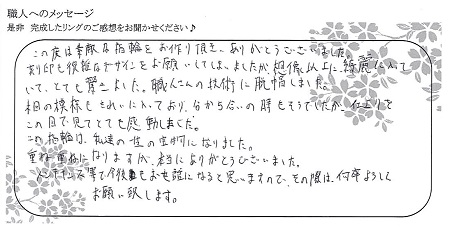 職人へのメッセージ
是非 完成したリングのご感想をお聞かせください♪
この度は素敵な指輪をお作り頂き、ありがとうございました。
刻印も複雑なデザインをお願いしてしまいましたが、想像以上に綺麗に入って
いて、とても驚きました。職人さんの技術に脱帽しました。
木目の模様もきれいに入っており、分かち合いの時もそうでしたが、仕上りで
この目で見てとても感動しました。
この指輪は、私達の一生の宝物になりました。
重ね重ねになりますが、本当にありがとうございました。
メンテナンス等で今後もお世話になると思いますので、その際は、何卒よろしく
お願い致します。